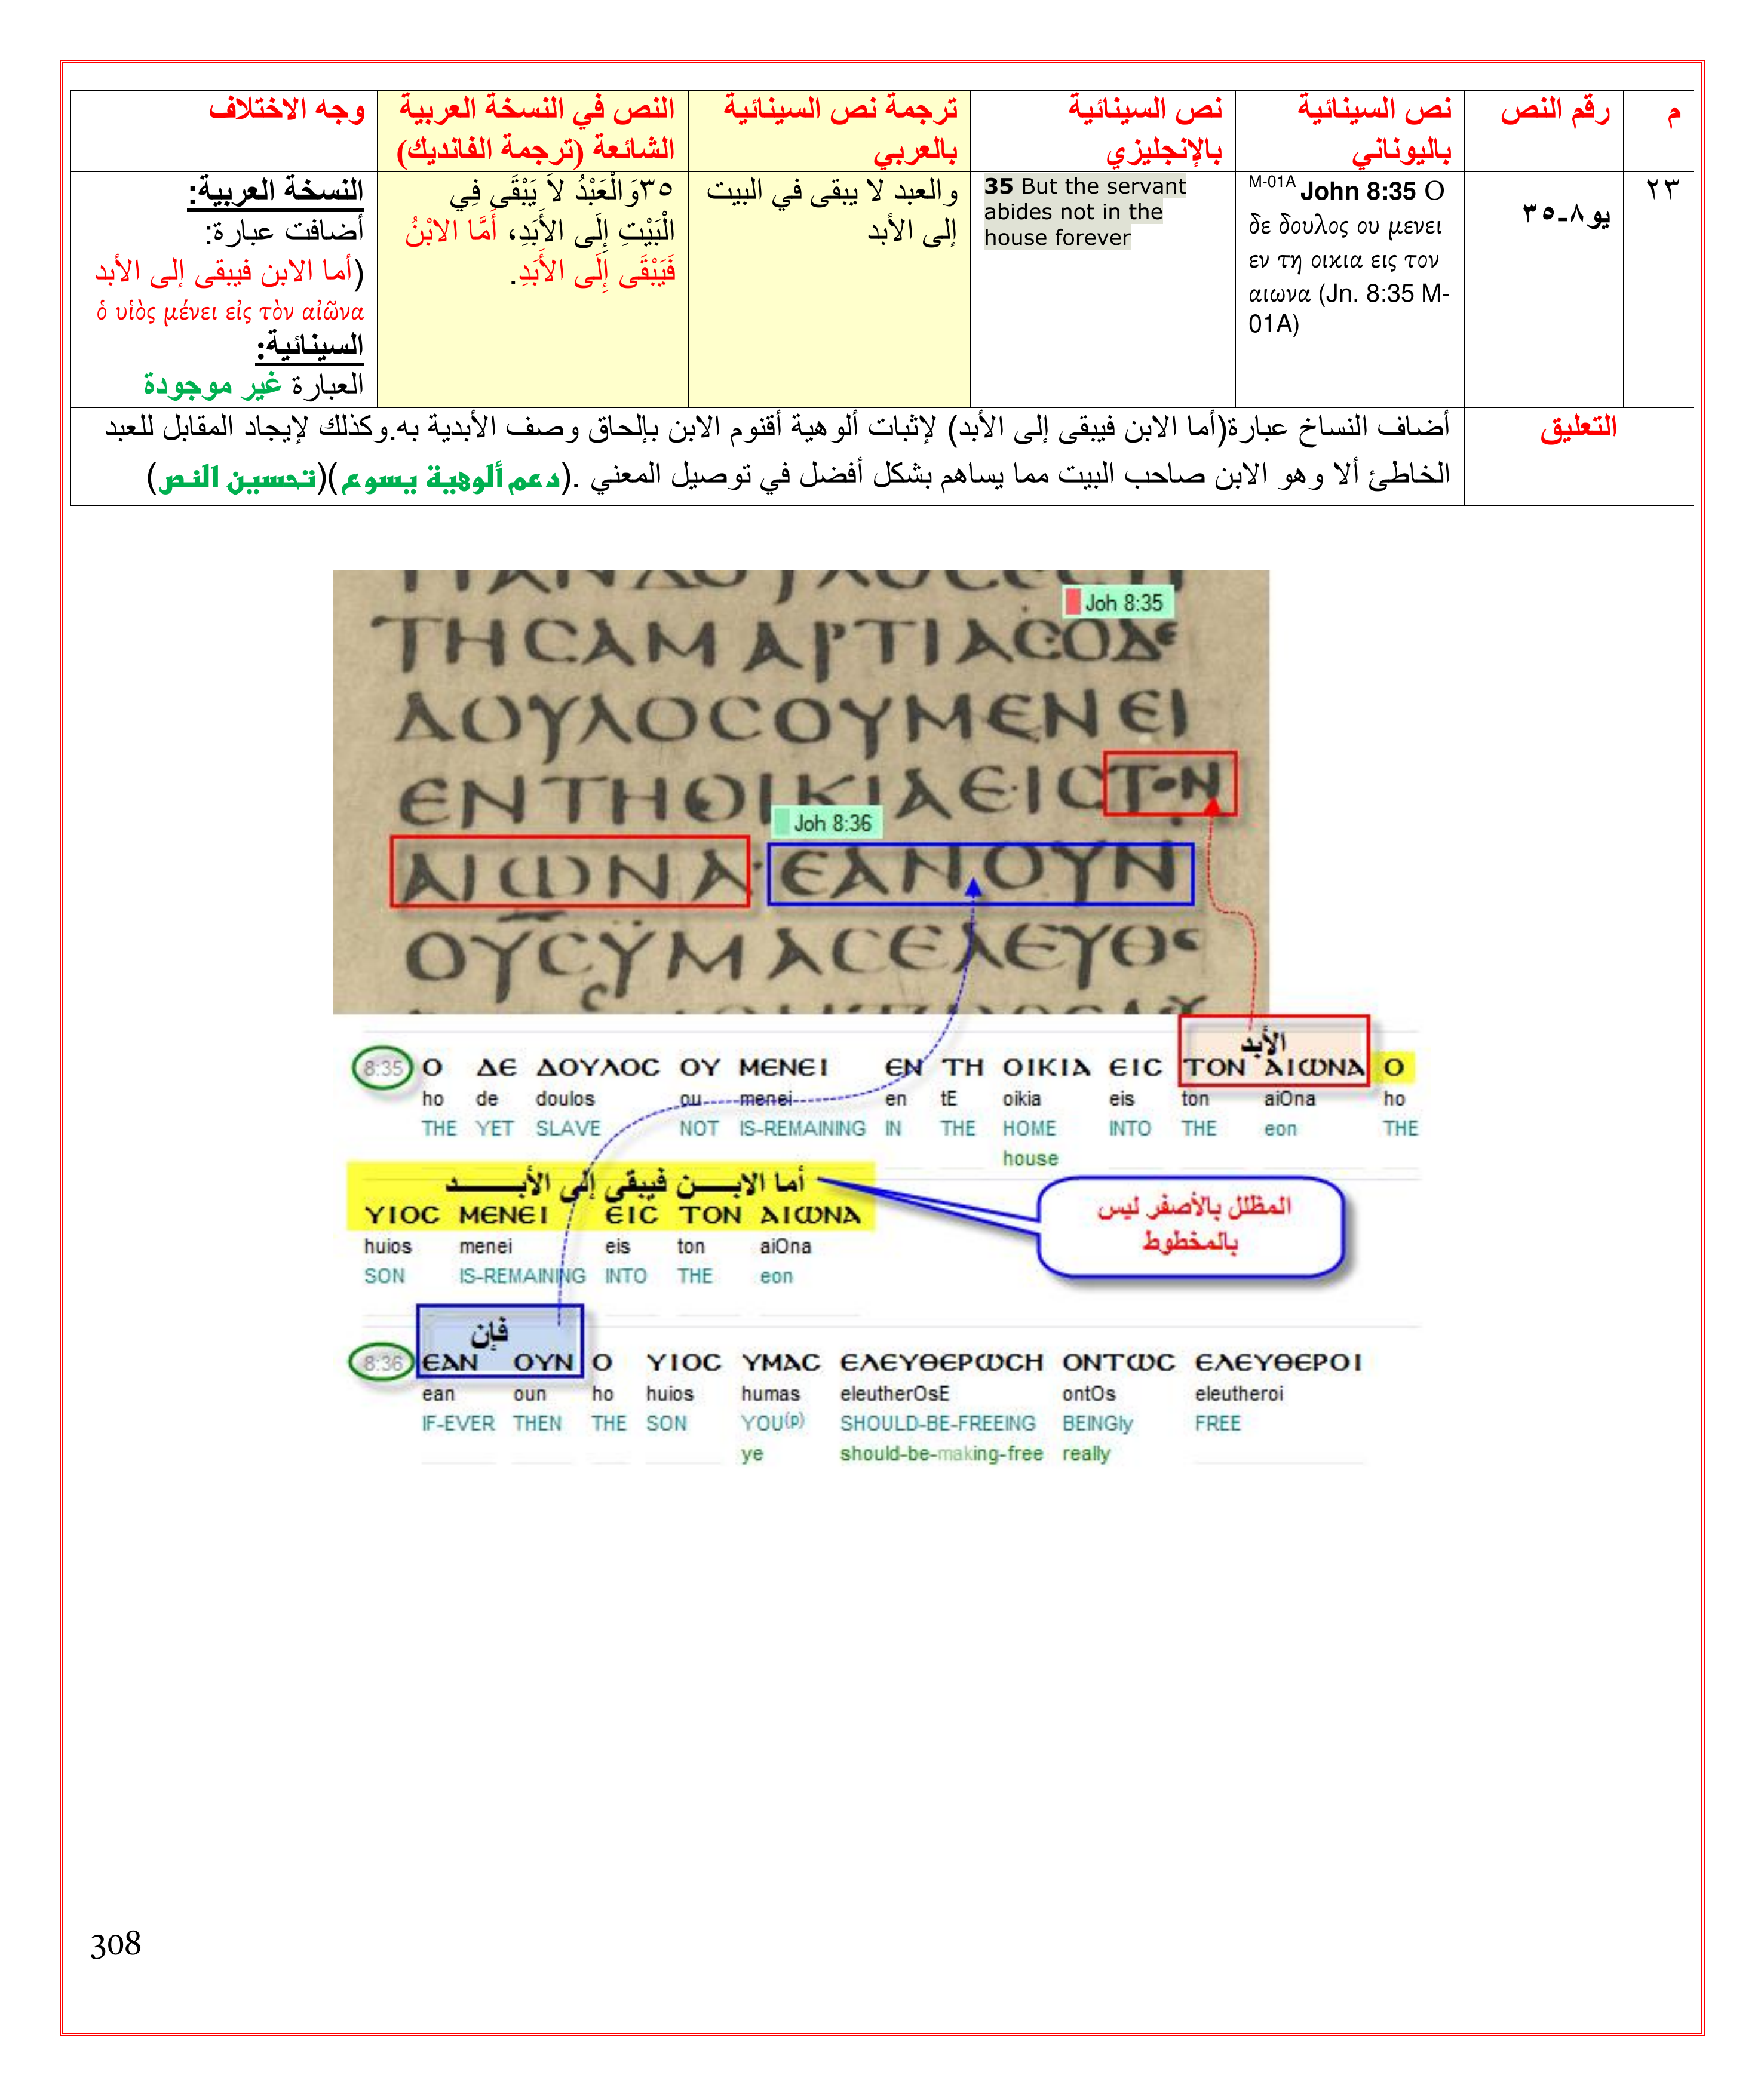 م
رقم النص
نص السينائية
باليوناني
نص السينائية
بالإنجليزي
ترجمة نص السينائية
بالعربي
النص في النسخة العربية
الشائعة (ترجمة الفانديك)
وجه الاختلاف
٢٣
يو٨-٣٥
M-01A John 8:35 Ο
δε δουλος ου μενει
εν τη οικια εις τον
αιωνα (Jn. 8:35 M-
01A)
35 But the servant
abides not in the
house forever
والعبد لا يبقى في البيت
إلى الأبد
٣٥وَالْعَبْدُ لاَ يَبْقَى فِي
الْبَيْتِ إِلَى الأَبَدِ، أَمَّا الابْنُ
فَيَبْقَى إِلَى الأَبَدِ.
النسخة العربية:
أضافت عبارة:
(أما الابن فيبقى إلى الأبد
ὁ υἱὸς μένει εἰς τὸν αἰῶνα
السينائية:
العبارة غير موجودة
التعليق
أضاف النساخ عبارة(أما الابن فيبقى إلى الأبد) لإثبات ألوهية أقنوم الابن بإلحاق وصف الأبدية به.وكذلك لإيجاد المقابل للعبد
الخاطئ ألا وهو الابن صاحب البيت مما يساهم بشكل أفضل في توصيل المعني .(دعم ألوهية يسوع)(تحسين النص)
Joh 8:35
ΤΗCΑΜΑΡΤΙΑCΟΔΕ
ΔΟΥΛΟCΟΥΜΕΝΕΙ
ΕΝΤΗΟΙΚΙΑΕΙCΤΟΝ
Joh 8:36
ΑΙΩΝΑ·ΕΑΝΟΥΝ
ΟΥCΫΜΑCΕΛΕΥΘΕ
الأبد
8:35 Ο ΔΕ ΔΟΥΛΟC ΟΥ ΜΕΝΕΙ ΕΝ ΤΗ ΟΙΚΙΑ ΕΙC ΤΟΝ ΑΙΩΝΑ Ο
ho de doulos ou menei en tE oikia eis ton aiOna ho
THE YET SLAVE NOT IS-REMAINING IN THE HOME INTO THE eon THE
house
أما الابـــن فيبقى إلى الأبـــــد
ΥΙΟC ΜΕΝΕΙ ΕΙC ΤΟΝ ΑΙΩΝΑ
huios menei eis ton aiOna
SON IS-REMAINING INTO THE eon
المظلل بالأصفر ليس
بالمخطوط
فإن
8:36 ΕΑΝ ΟΥΝ Ο ΥΙΟC ΥΜΑC ΕΛΕΥΘΕΡΩCΗ ΟΝΤΩC ΕΛΕΥΘΕΡΟΙ
ean oun ho huios humas eleutherOsE ontOs eleutheroi
IF-EVER THEN THE SON YOU(p) SHOULD-BE-FREEING BEINGly FREE
ye should-be-making-free really
308